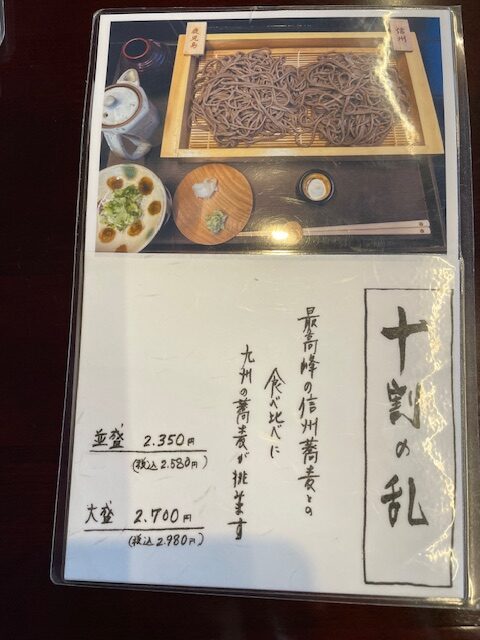 鹿児島
信州
十割の乱
最高峰の信州蕎麦との
食べ比べに
九州の蕎麦が挑みます
並盛 2.350円
(税込2.580円)
大盛 2.700円
(税込2.980円)